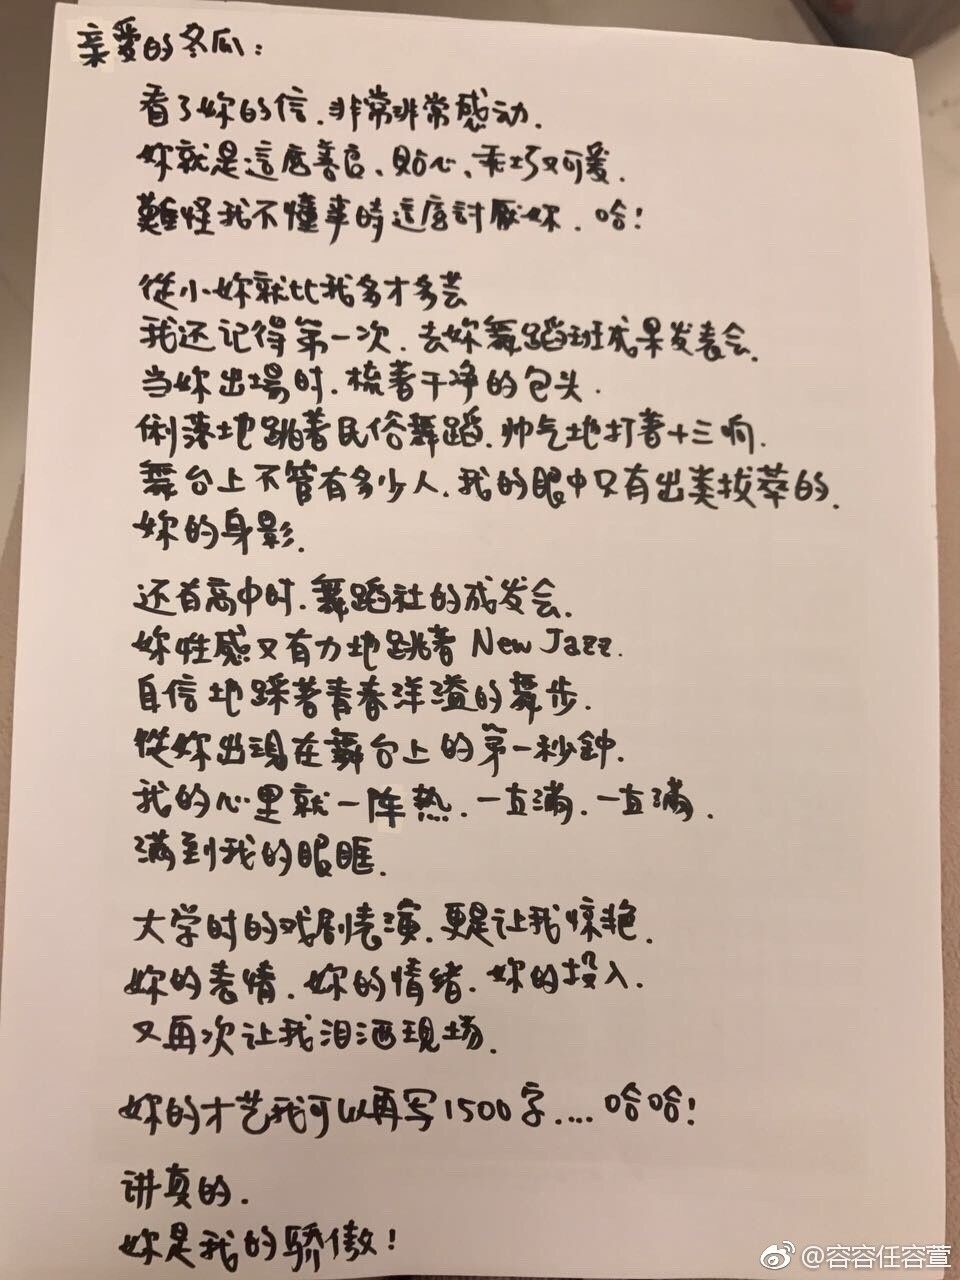 亲愛的冬瓜：
看了妳的信，非常非常感动，
妳就是這麼善良、贴心、乖巧又可爱，
難怪我不懂事時這麼討厭妳，哈！
從小妳就比我多才多芸
我还记得第一次，去妳舞蹈班成果发表会，
当妳出場时，梳著干净的包头，
俐落地跳著民俗舞蹈，帅气地打著十三响，
舞台上不管有多少人，我的眼中只有出类拔萃的，
妳的身影，
还有高中时，舞蹈社的成发会，
妳性感又有力地跳著 New Jazz，
自信地踩著青春洋溢的舞步，
從妳出現在舞台上的第一秒鐘，
我的心里就一阵热，一直满，一直满，
满到我的眼眶，
大学时的戏剧表演，更是让我惊艳，
妳的表情，妳的情绪，妳的投入，
又再次让我泪洒现场，
妳的才艺我可以再写1500字....哈哈！
讲真的，
妳是我的骄傲！
@容容任容萱